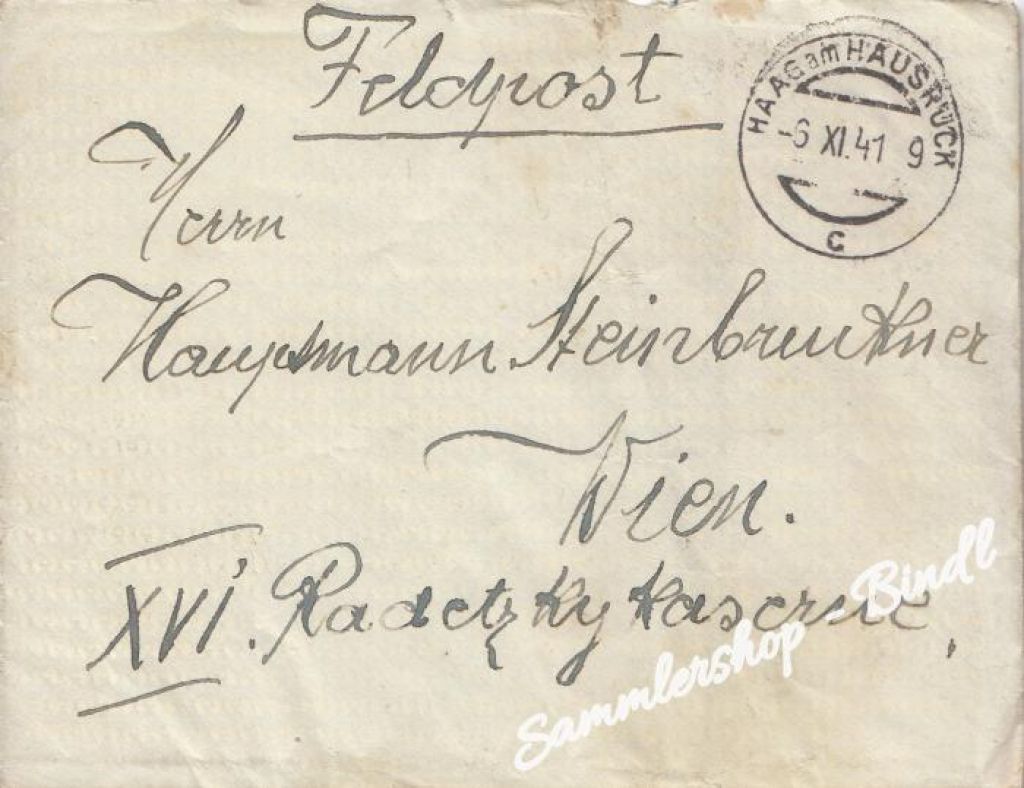 Feldpost
HAAG am HAUSRUCK
-6 XI.41 9
c
Herrn
Hauptmann Steinbruckner
Wien.
XVI. Radetzkykaserne,
Sammlershop Bindl